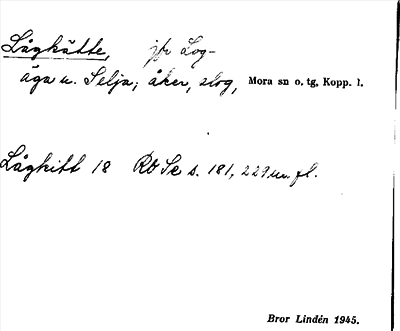 Låghätte, jfr Log-
äga u. Selja; åker, slog, Mora sn o. tg, Kopp. l.
Låghitt 18 Rö Sk s. 181, 229 m. fl.
Bror Lindén 1945.